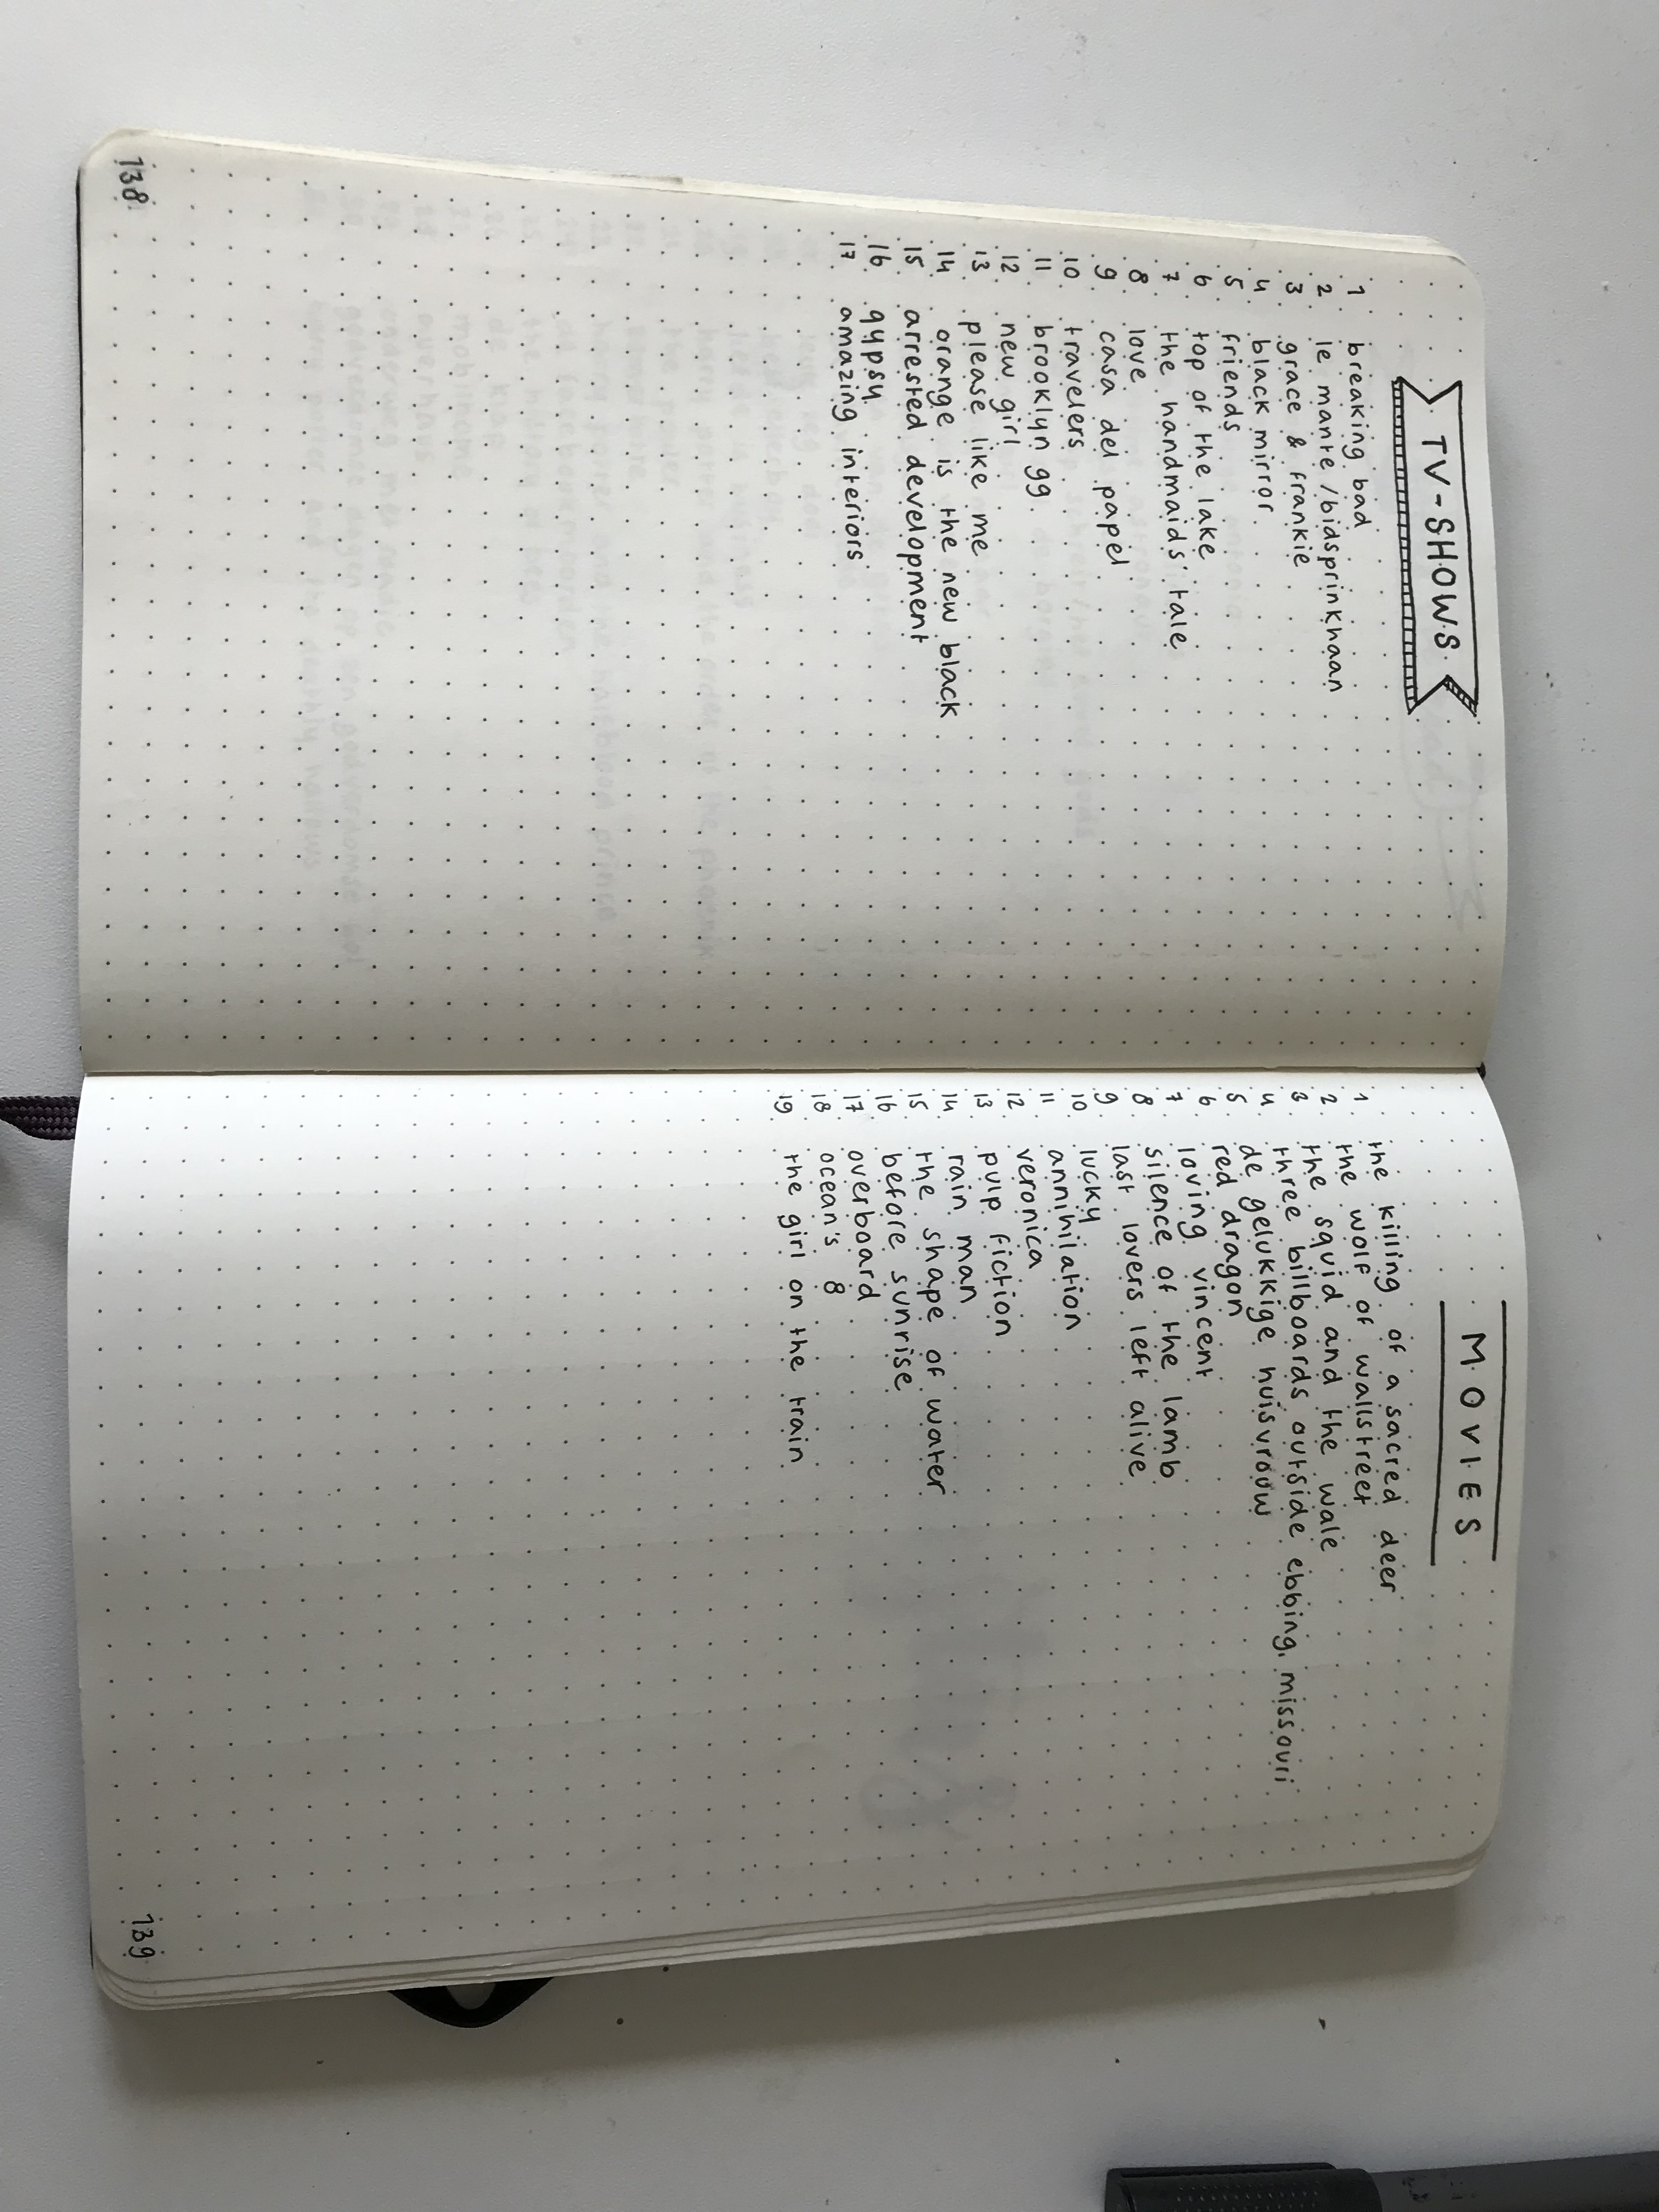 TV-SHOWS
1 breaking bad
2 le mante / bidsprinkhaan
3 grace & frankie
4 black mirror
5 friends
6 top of the lake
7 the handmaids' tale
8 love
9 casa del papel
10 travelers
11 brooklyn 99
12 new girl
13 please like me
14 orange is the new black
15 arrested development
16 gypsy
17 amazing interiors
138
MOVIES
1 the killing of a sacred deer
2 the wolf of wallstreet
3 the squid and the wale
4 three billboards outside ebbing, missouri
5 de gelukkige huisvrouw
6 red dragon
7 loving vincent
8 silence of the lamb
9 last lovers left alive
10 lucky
11 annihilation
12 veronica
13 pulp fiction
14 rain man
15 the shape of water
16 before sunrise
17 overboard
18 ocean's 8
19 the girl on the train
139